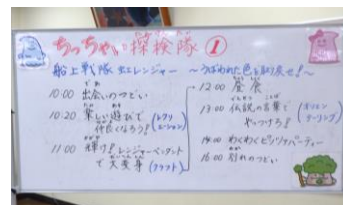 ちっちゃい探検隊①
船上戦隊 虹レンジャー ～うばわれた色を取り戻せ!～
10:00 出会いのつどい
10:20 楽しい遊びで
仲良くなろう!
(レクリエーション)
11:00 輝け!レンジャーペンダント
で大変身
(クラフト)
12:00 昼食
13:00 伝説の言葉で
やっつけろ!
(オリエンテーリング)
わくわくビリリパーティー
16:00 別れのつどい